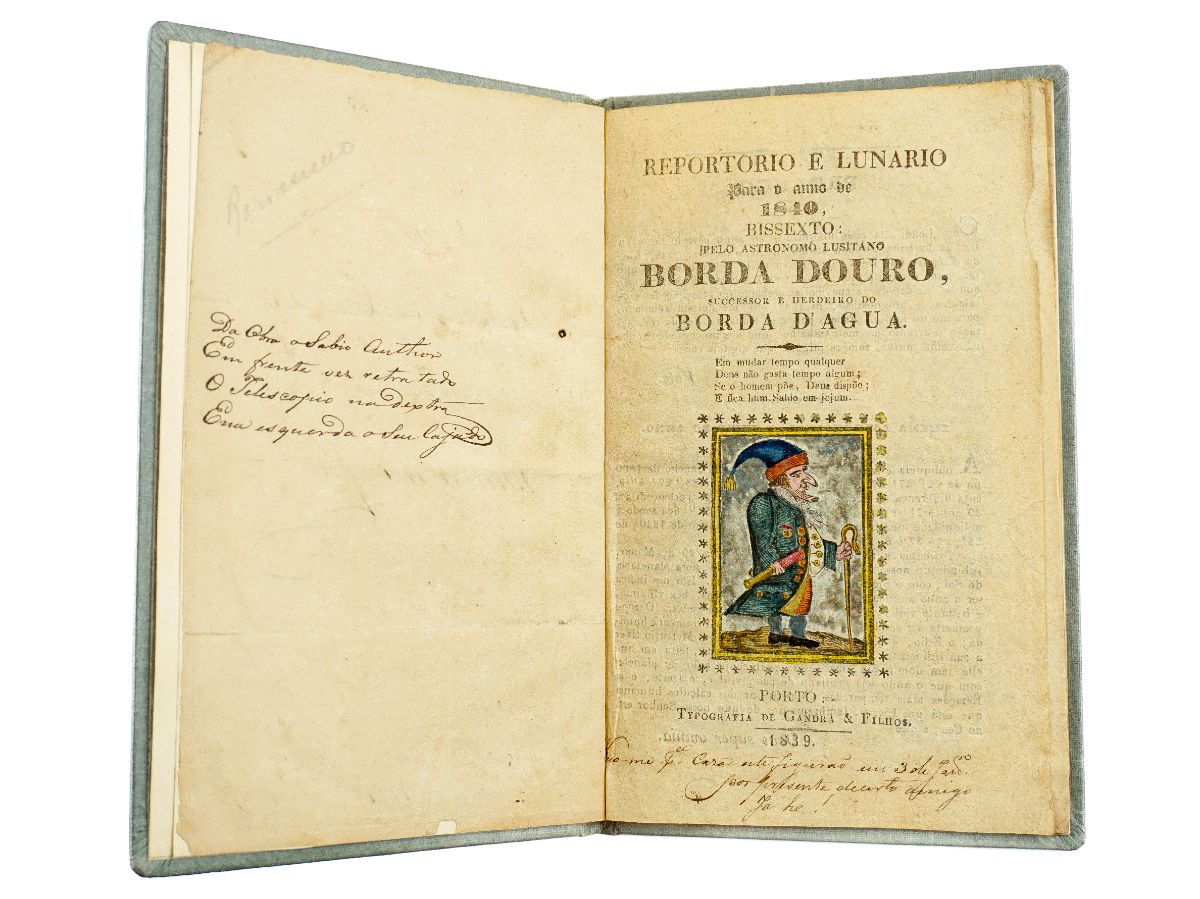 Da Obra o Sabio Author
Em frente vez retratado
O Telescopio na dextra
E na esquerda o Seu Cajado
REPORTORIO E LUNARIO
Para o anno de
1840,
BISSEXTO:
PELO ASTRONOMO LUSITANO
BORDA DOURO,
SUCCESSOR E HERDEIRO DO
BORDA D'AGUA.
Em mudar tempo qualquer
Deus não gasta tempo algum;
Se o homem põe, Deus dispõe;
E fica hum Sabio em jejum.
PORTO:
TYPOGRAFIA DE GANDRA & FILHOS.
1839.
me pª Caza este figurão em 3 de Janro
por presente de certo amigo
Já he!